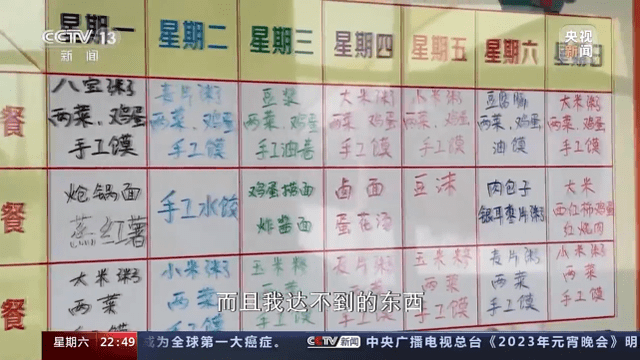 CCTV 13
新闻
央视
新闻
星期一 星期二 星期三 星期四 星期五 星期六 星期日
餐
八宝粥
两菜、鸡蛋
手工馍
麦片粥
两菜、鸡蛋
手工馍
豆浆
两菜、鸡蛋
手工油卷
大米粥
两菜、鸡蛋
手工馍
小米粥
两菜、鸡蛋
手工馍
豆腐脑
两菜、鸡蛋
油馍
大米粥
两菜、鸡蛋
手工馍
餐
炝锅面
蒸红薯
手工水饺
鸡蛋捞面
炸酱面
卤面
蛋花汤
豆沫
肉包子
银耳枣片粥
大米
西红柿鸡蛋
红烧肉
餐
大米粥
两菜
手工馍
小米粥
两菜
手工馍
玉米糁
两菜
手工馍
麦片粥
两菜
手工馍
玉米糁
两菜
手工馍
麦片粥
两菜
手工馍
小米粥
两菜
手工馍
而且我达不到的东西
星期六 22:49 成为全球第一大癌症。 CCTV 新闻 中央广播电视总台《2023年元宵晚会》明